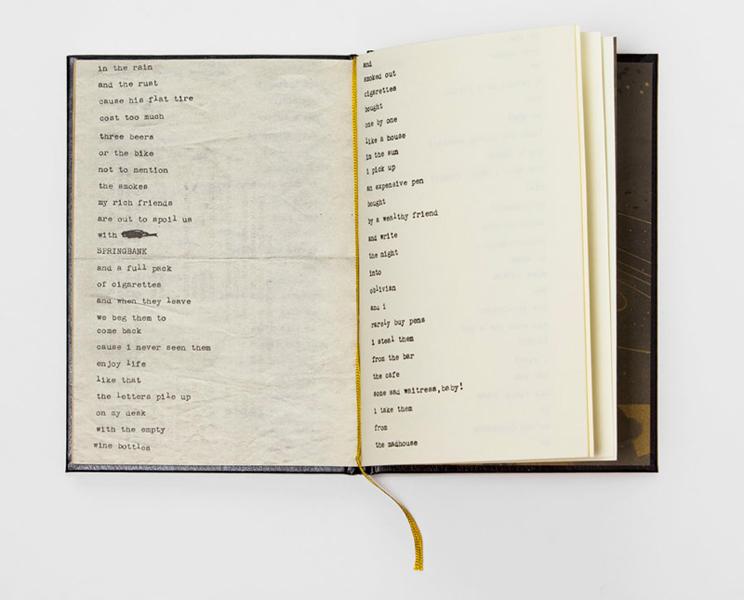 in the rain
and the rust
cause his flat tire
cost too much
three beers
or the bike
not to mention
the smokes
my rich friends
are out to spoil us
with
SPRINGBANK
and a full pack
of cigarettes
and when they leave
we beg them to
come back
cause i never seen them
enjoy life
like that
the letters pile up
on my desk
with the empty
wine bottles
and
smoked out
cigarettes
bought
one by one
like a house
in the sun
i pick up
an expensive pen
bought
by a wealthy friend
and write
the night
into
oblivian
and i
rarely buy pens
i steal them
from the bar
the cafe
some sad waitress,baby!
i take them
from
the madhouse